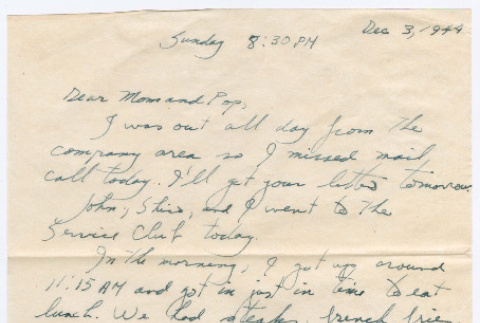 Dec 3, 1944
Sunday 8:30 PM
Dear Mom and Pop,
I was out all day from the
company area so I missed mail
call today. I'll get your letter tomorrow.
John, Shiro, and I went to the
Service Club today.
In the morning, I got up around
11:15 AM and got in just in time to eat
lunch. We had steak, french